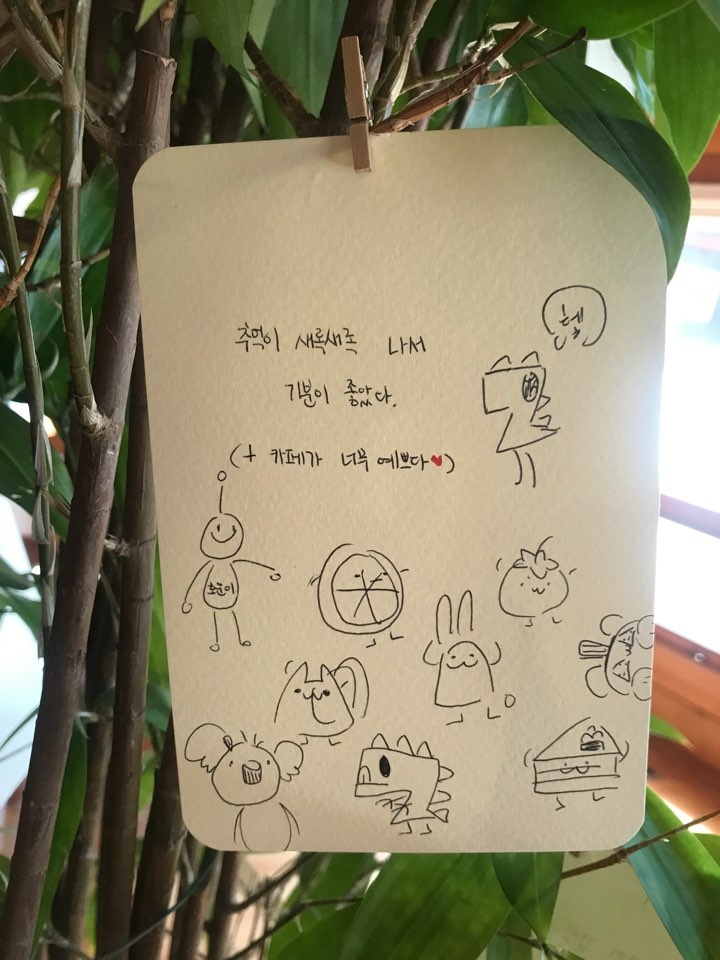 추억이 새록새록 나서
기분이 좋았다.
(+ 카페가 너무 예쁘다♥)
헿